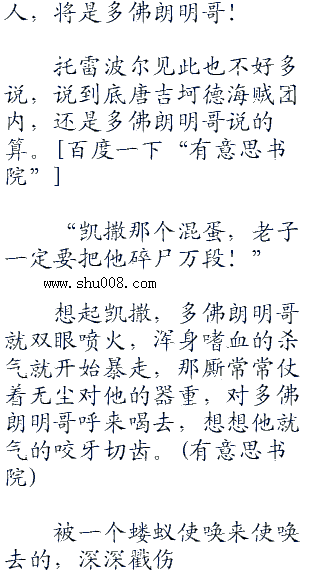 人，将是多佛朗明哥！
托雷波尔见此也不好多
说，说到底唐吉坷德海贼团
内，还是多佛朗明哥说的
算。[百度一下“有意思书
院”]
“凯撒那个混蛋，老子
一定要把他碎尸万段！”
www.shu008.com
想起凯撒，多佛朗明哥
就双眼喷火，浑身嗜血的杀
气就开始暴走，那厮常常仗
着无尘对他的器重，对多佛
朗明哥呼来喝去，想想他就
气的咬牙切齿。(有意思书
院)
被一个蝼蚁使唤来使唤
去的，深深戳伤